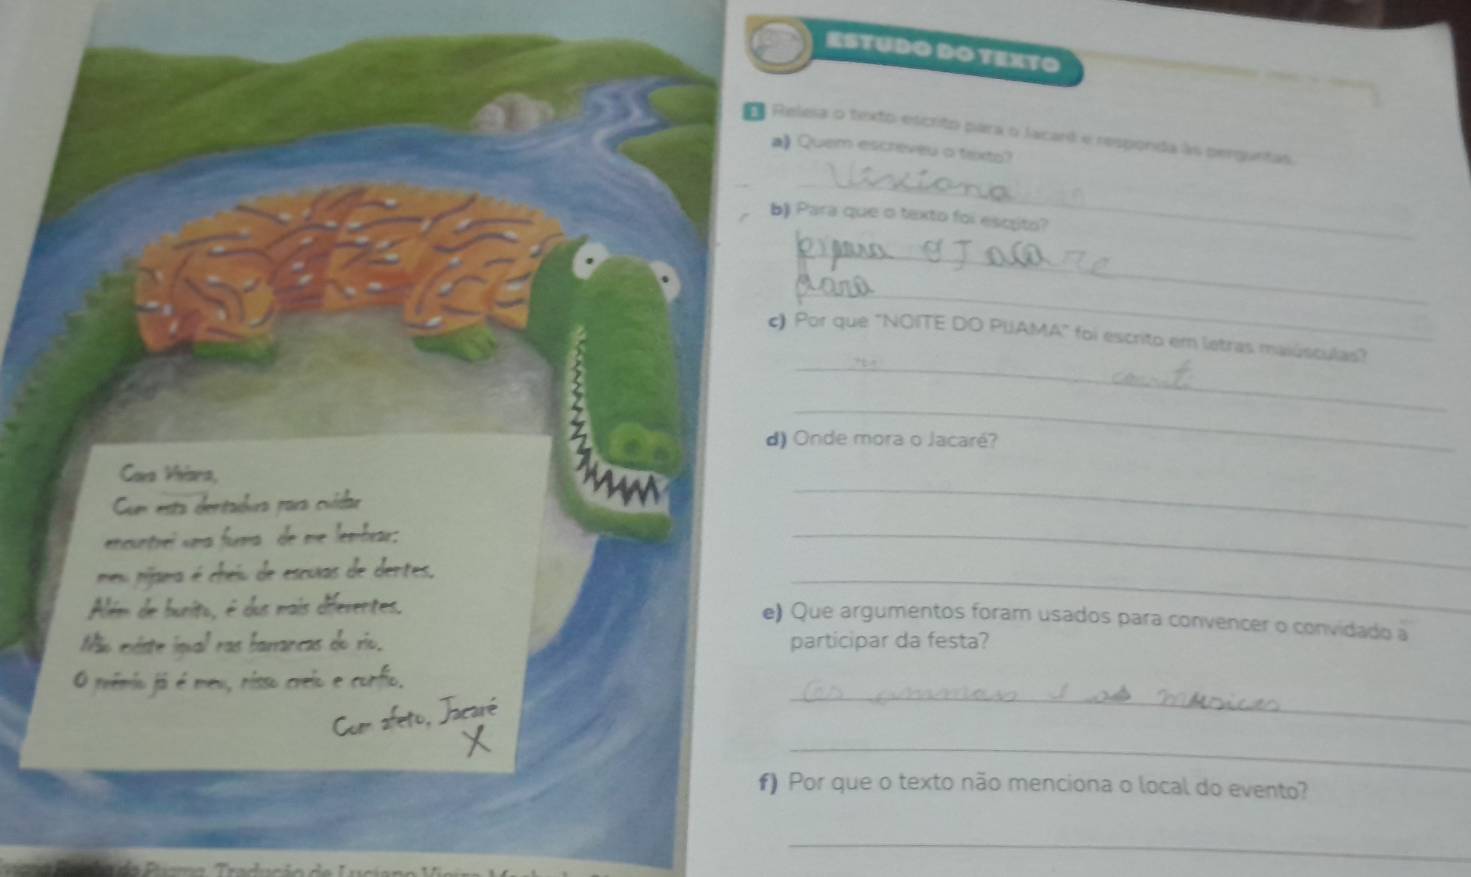 Cara Viviana,
Com esta dentadura para cuidar
encontrei uma forma de me lembrar:
meu pijama é cheio de escovas de dentes.
Além de bonito, é dos mais diferentes.
Não existe igual nas barrancas do rio.
O prêmio já é meu, nisso creio e confio.
Com afeto, Jacaré
X
Tradução de Luciano Vieira
ESTUDO DO TEXTO
1 Releia o texto escrito para o Jacaré e responda às perguntas.
a) Quem escreveu o texto?
Viviana
b) Para que o texto foi escrito?
para o Jacare
para
c) Por que "NOITE DO PIJAMA" foi escrito em letras maiúsculas?
d) Onde mora o Jacaré?
e) Que argumentos foram usados para convencer o convidado a
participar da festa?
as musicas
f) Por que o texto não menciona o local do evento?